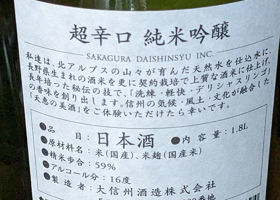 超辛口 純米吟醸
SAKAGURA DAISHINSYU INC.
私達は、北アルプスの山々が育んだ天然水を仕込水に、
長野県生まれの酒米を更に契約栽培で上質な酒米に仕上げ、
長年培った秘伝の技で、「洗練・軽快・デリシャスリンゴ」
の香味を創り出します。信州の気候・風土・文化が融合した
「天恵の美酒」をご体験いただけたら幸いです。
●品目:日本酒 ●内容量:1.8L
●原材料名:米(国産)、米麹(国産米)
●精米歩合:59%
●アルコール分:16度
●製造者:大信州酒造株式会社